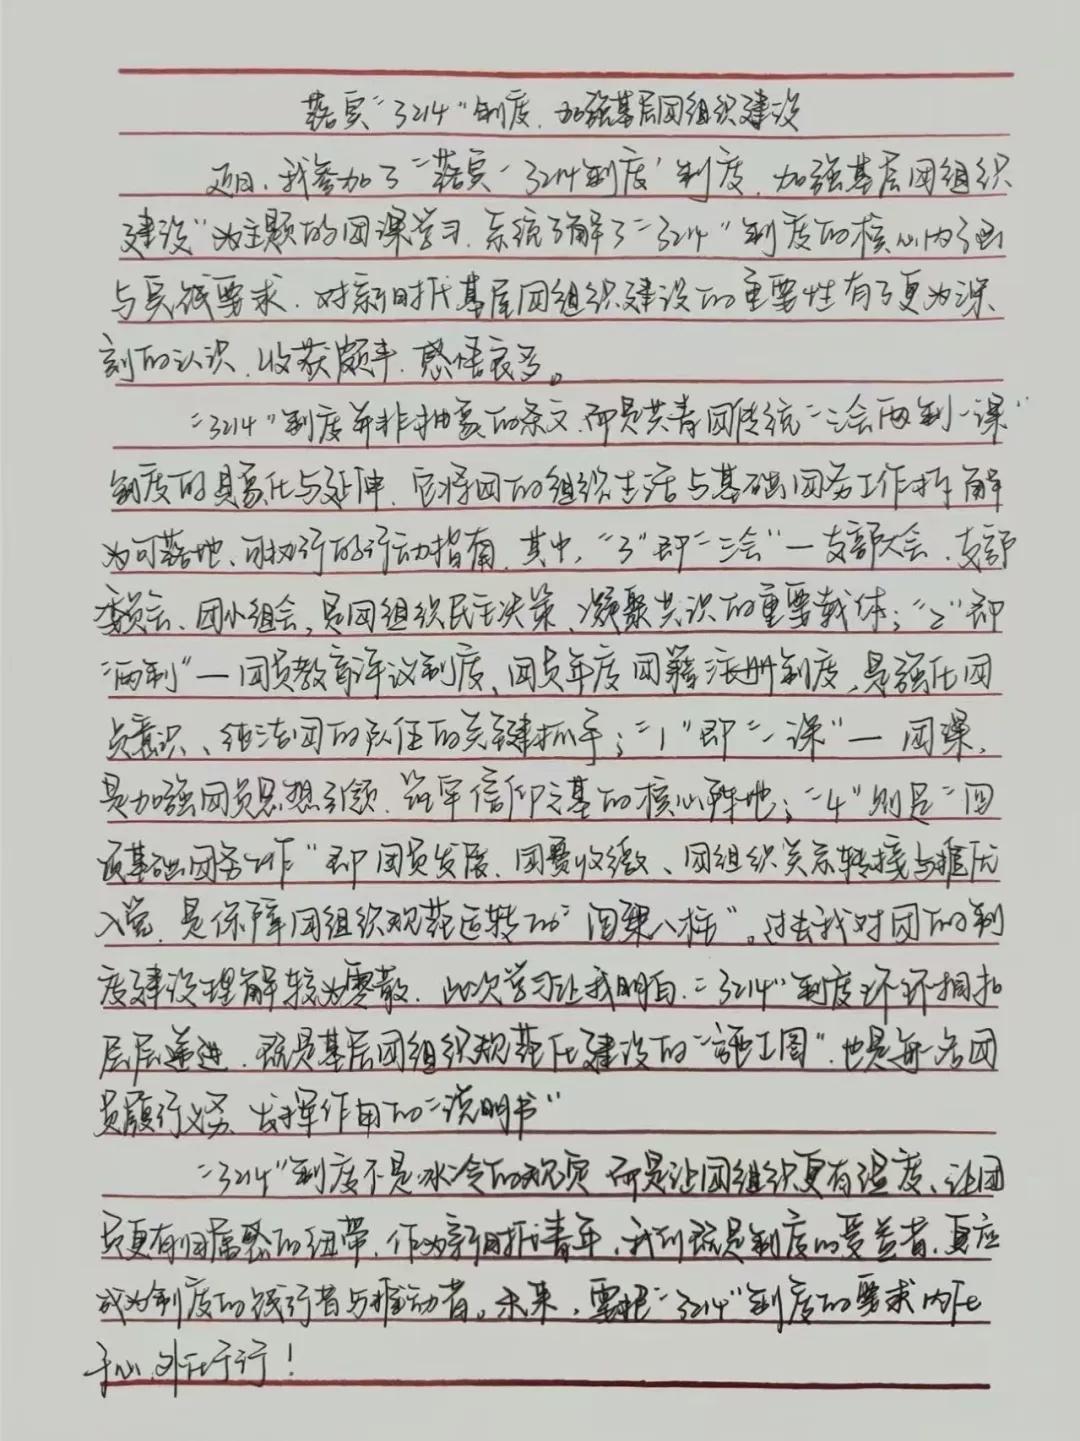 落实“3214”制度，加强基层团组织建设
近日，我参加了“落实‘3214制度’制度，加强基层团组织
建设”为主题的团课学习，系统了解了“3214”制度的核心内涵
与实践要求，对新时代基层团组织建设的重要性有了更为深
刻的认识，收获颇丰，感悟良多。
“3214”制度并非抽象的条文，而是共青团传统“三会两制一课”
制度的具象化与延伸，它将团的组织生活与基础团务工作拆解
为可落地、可执行的行动指南，其中，“3”即“三会”—支部大会、支部
委员会、团小组会，是团组织民主决策、凝聚共识的重要载体；“2”即
“两制”—团员教育评议制度、团员年度团籍注册制度，是强化团
员意识、纯洁团的队伍的关键抓手；“1”即“一课”—团课，
是加强团员思想引领、筑牢信仰之基的核心阵地；“4”则是“四
项基础团务工作”即团员发展、团费收缴、团组织关系转接与推优
入党，是保障团组织规范运转的“四梁八柱”。过去我对团的制
度建设理解较为零散，此次学习让我明白，“3214”制度环环相扣
层层递进，既是基层团组织规范化建设的“施工图”，也是每一名团
员履行义务、发挥作用的“说明书”
“3214”制度不是冰冷的规定，而是让团组织更有温度、让团
员更有归属感的纽带，作为新时代青年，我们既是制度的受益者，更应
成为制度的践行者与推动者。未来，要把“3214”制度的要求内化
于心，外化于行！